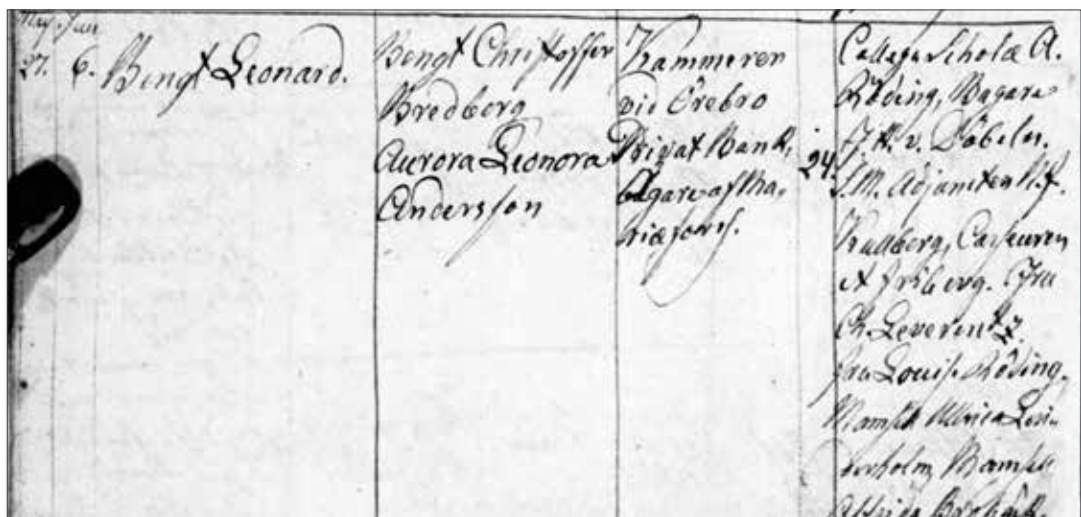 May. Jun
27. 6. Bengt Leonard.
Bengt Christoffer
Bredberg
Aurora Leonora
Andersson
Kammerer
vid Örebro
Privat Bank,
Ägare af Ma,
riæfors.
24.
Collega Scholæ A.
Röding, Bagare
J. H. v. Döbeln.
S. M. Adjuncten
Kullberg,
Friberg. Fru
Ch. Leverentz
fru Louis. Röding,
Mamsell Ulrica Lin
derholm, Mamsell